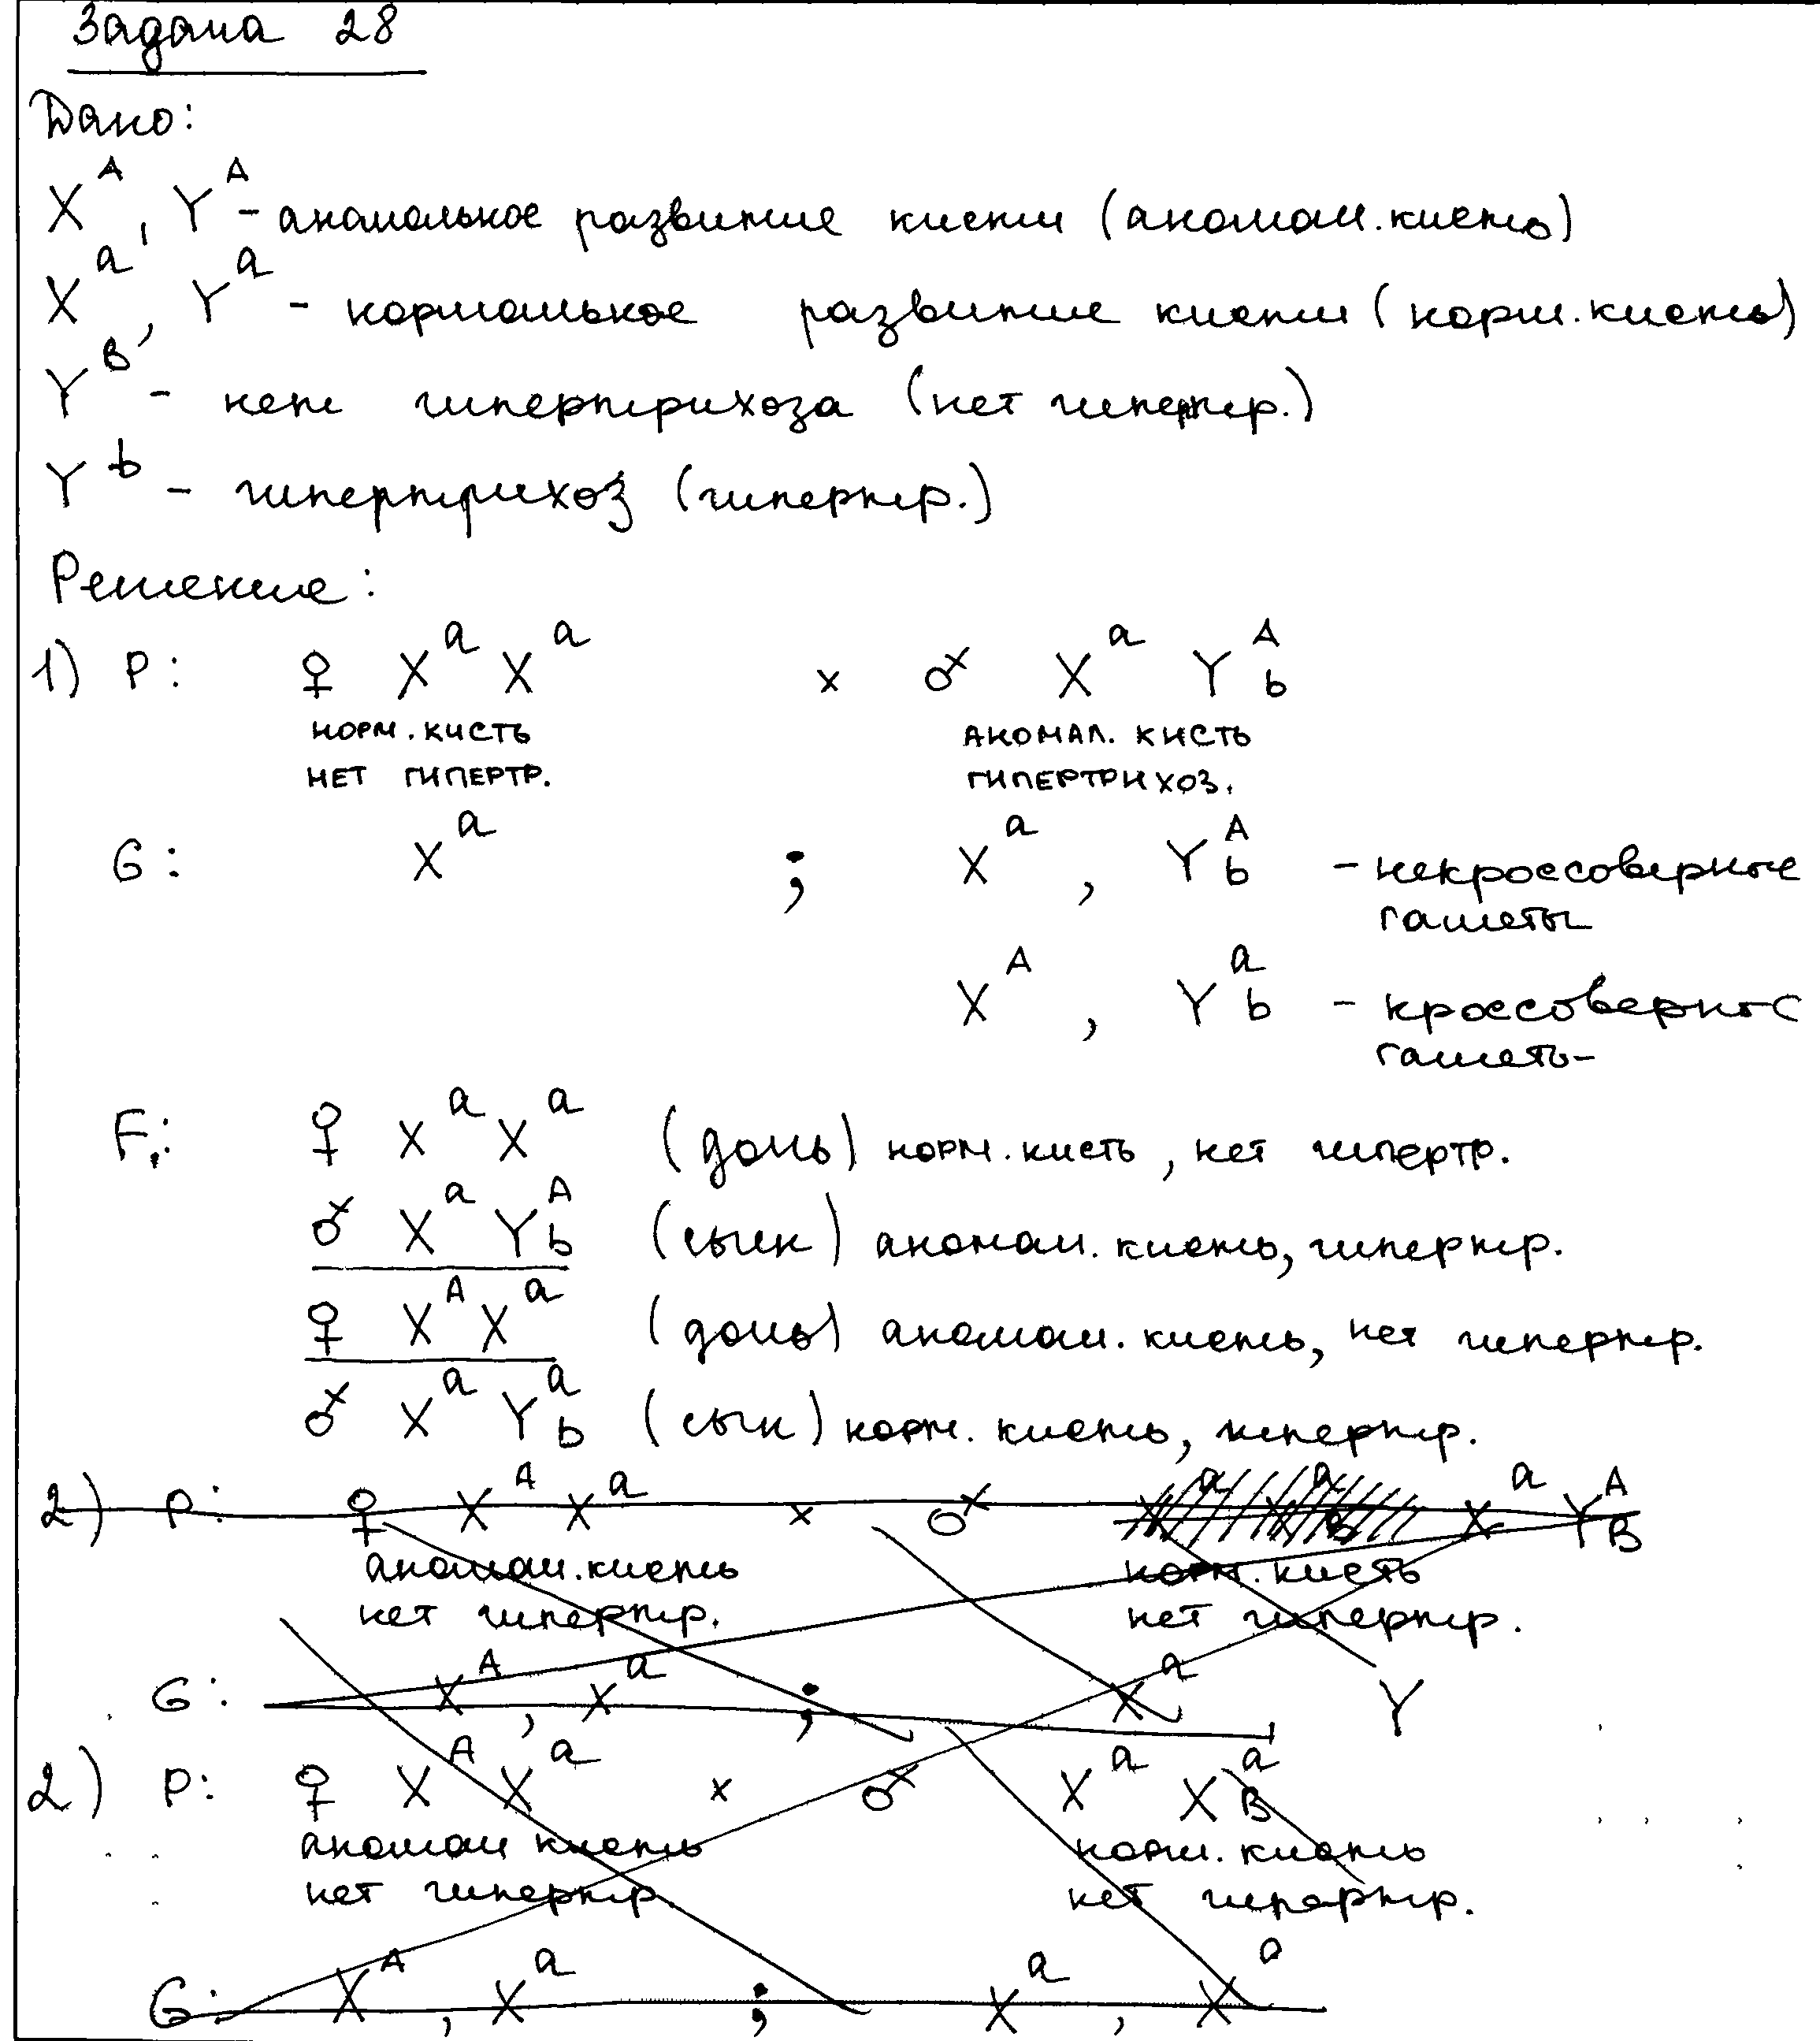 Задача 28
Дано:
X^A, Y^A - аномальное развитие кисти (аномал. кисть)
X^a, Y^a - нормальное развитие кисти (норм. кисть)
Y^B - нет гипертрихоза (нет гипертр.)
Y^b - гипертрихоз (гипертр.)
Решение:
1) P: ♀ X^a X^a × ♂ X^a Y^A_b
норм. кисть аномал. кисть
нет гипертр. гипертрихоз.
G: X^a ; X^a, Y^A_b - некроссоверные
гаметы
X^A, Y^a_b - кроссоверные
гаметы
F1: ♀ X^a X^a (дочь) норм. кисть, нет гипертр.
♂ X^a Y^A_b (сын) аномал. кисть, гипертр.
♀ X^A X^a (дочь) аномал. кисть, нет гипертр.
♂ X^a Y^a_b (сын) норм. кисть, гипертр.
2) P: ♀ X^A X^a × ♂ X^a Y^A_B
аномал. кисть норм. кисть
нет гипертр. нет гипертр.
G: X^A, X^a ; X^a Y
2) P: ♀ X^A X^a × ♂ X^a X^a_B
аномал кисть норм. кисть
нет гипертр. нет гипертр.
G: X^A, X^a ; X^a, X^a